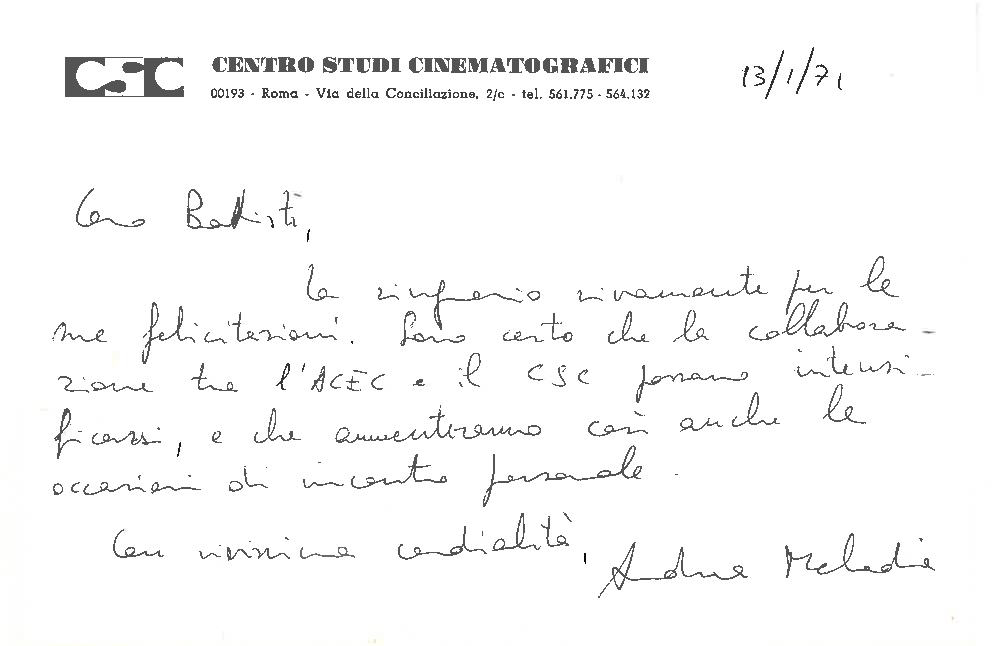 CSC CENTRO STUDI CINEMATOGRAFICI
00193 - Roma - Via della Conciliazione, 2/c - tel. 561.775 - 564.132
13/1/71
Caro Battisti,
La ringrazio vivamente per le
sue felicitazioni. Sono certo che la collabora-
zione tra l'ACEC e il CSC possano intensi-
ficarsi, e che aumenteranno così anche le
occasioni di incontro personale.
Con vivissima cordialità,
Andrea Melodia